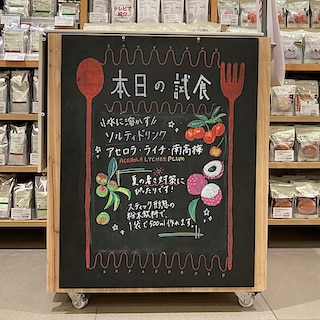 テレビで
紹介
本日の試食
\\水に溶かす//
ソルティドリンク
アセロラ・ライチ・南高梅
ACEROLA LYCHEE PLUM
夏の暑さ対策に
ぴったりです!
スティック形態の
粉末飲料で、
1袋で500ml作れます。